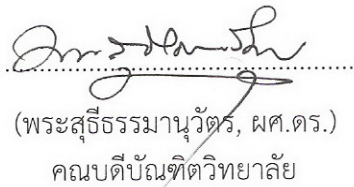 (พระสุธีธรรมานุวัตร, ผศ.ดร.)
คณบดีบัณฑิตวิทยาลัย